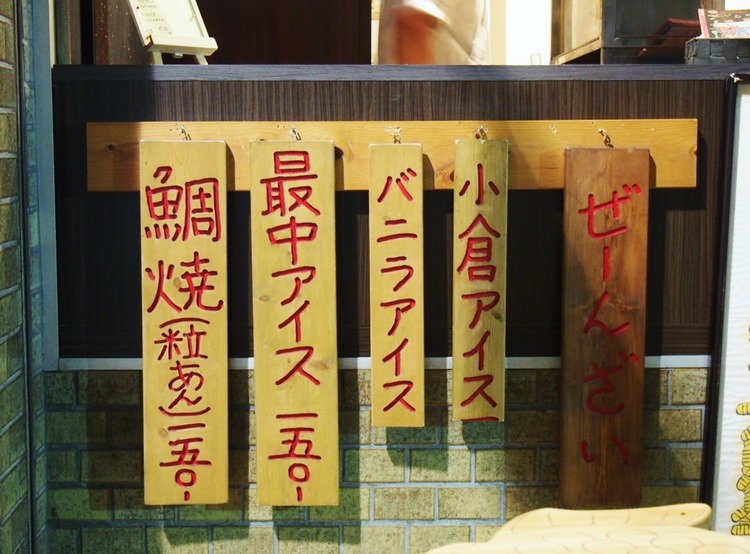 鯛焼(粒あん)一五〇-
最中アイス 一五〇-
バニラアイス
小倉アイス
ぜーんざい